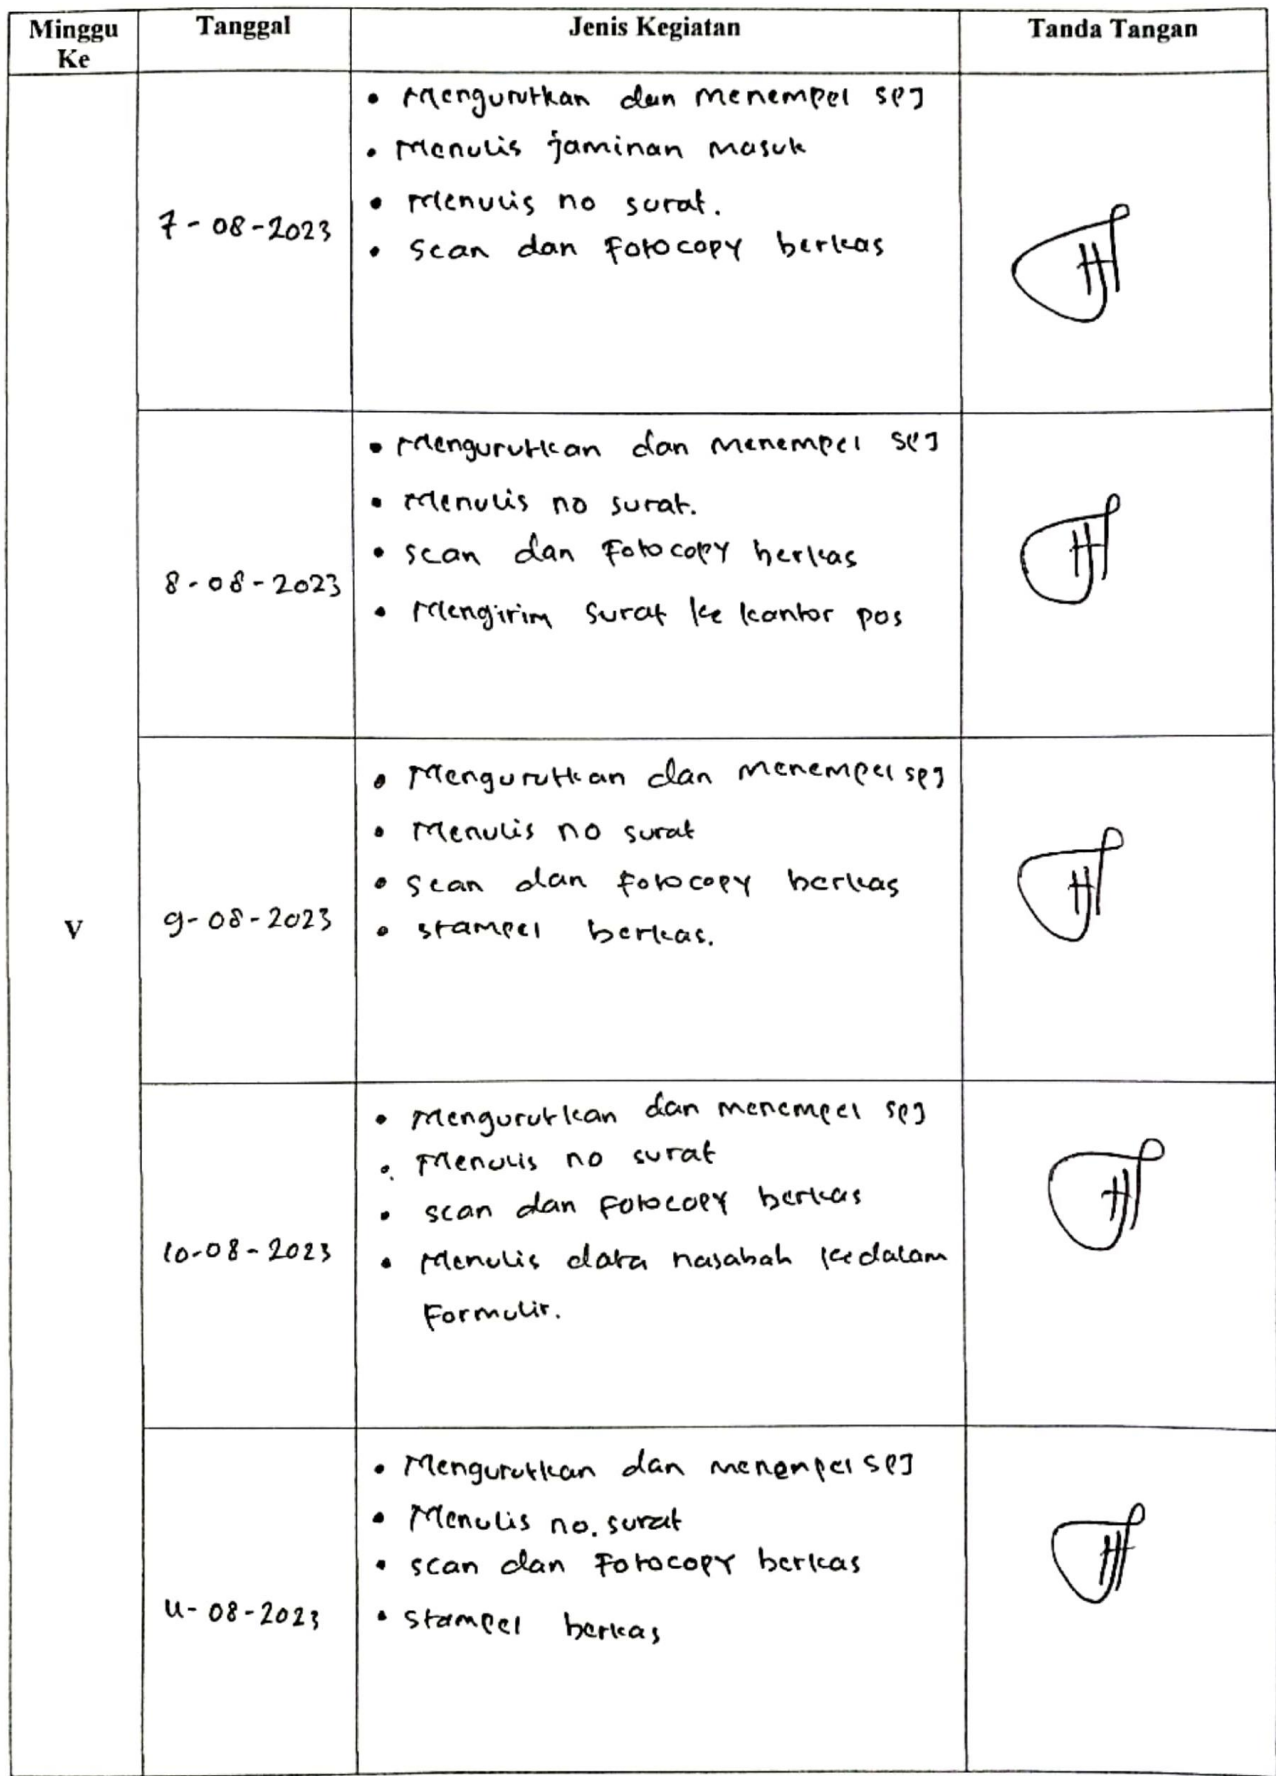 Minggu Ke Tanggal Jenis Kegiatan Tanda Tangan
V
7-08-2023
• Mengurutkan dan menempel SPJ
• Menulis jaminan masuk
• Menulis no surat.
• Scan dan Fotocopy berkas
8-08-2023
• Mengurutkan dan menempel SPJ
• Menulis no surat.
• scan dan Fotocopy berkas
• Mengirim surat ke kantor pos
9-08-2023
• Mengurutkan dan menempel SPJ
• Menulis no surat
• Scan dan fotocopy berkas
• stampel berkas.
10-08-2023
• Mengurutkan dan menempel SPJ
• Menulis no surat
• scan dan Fotocopy berkas
• Menulis data nasabah kedalam
Formulir.
11-08-2023
• Mengurutkan dan menempel SPJ
• Menulis no. surat
• scan dan Fotocopy berkas
• Stampel berkas